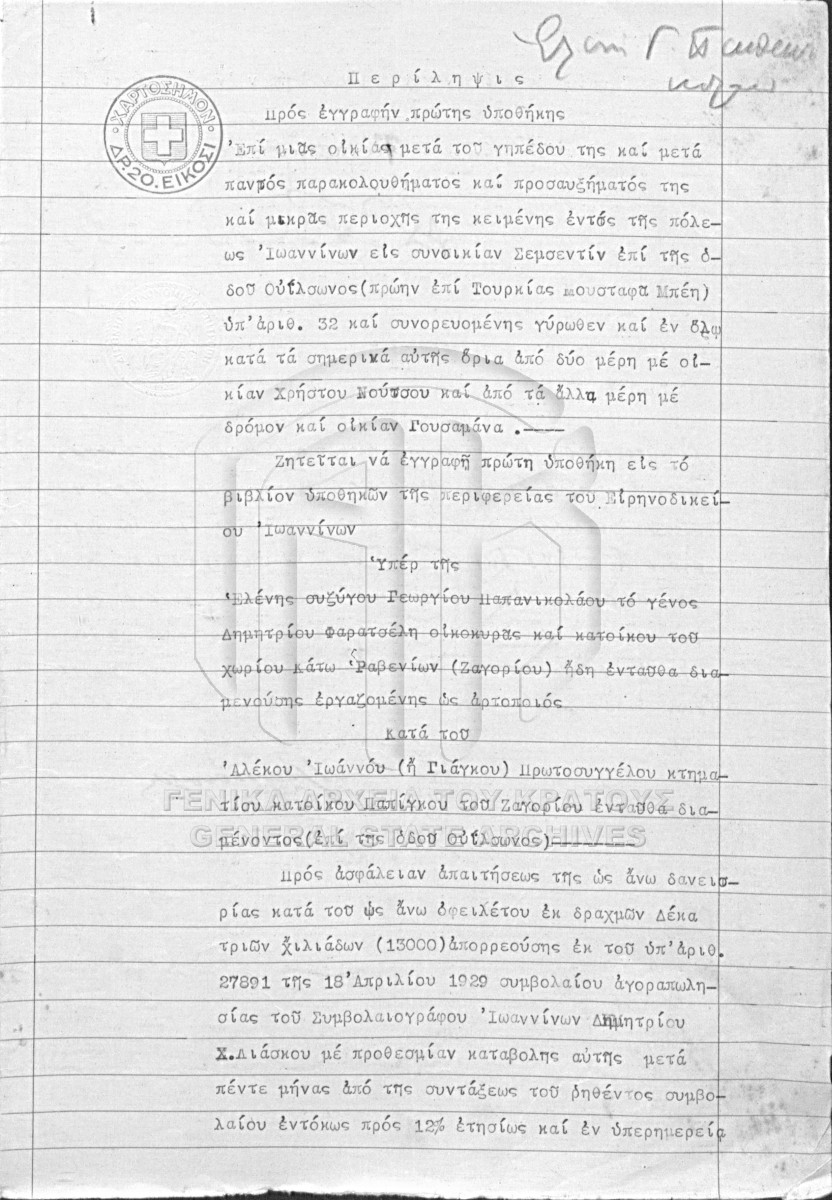 Περίληψις
ΧΑΡΤΟΣΗΜΟΝ
ΔΡ.20.ΕΙΚΟΣΙ
Πρός ἐγγραφήν πρώτης ὑποθήκης
Ἐπί μιᾶς οἰκίας μετά τοῦ γηπέδου της καί μετά
παντός παρακολουθήματος καί προσαυξήματός της
καί μικρᾶς περιοχῆς της κειμένης ἐντός τῆς πόλε-
ως Ἰωαννίνων εἰς συνοικίαν Σεμσεντίν ἐπί τῆς ὁ-
δοῦ Οὐΐλσωνος(πρώην ἐπί Τουρκίας Μουσταφᾶ Μπέη)
ὑπ'ἀριθ. 32 καί συνορευομένης γύρωθεν καί ἐν ὅλῳ
κατά τά σημερικά αὐτῆς ὅρια ἀπό δύο μέρη μέ οἰ-
κίαν Χρήστου Νούτσου καί ἀπό τά ἄλλα μέρη μέ
δρόμον καί οἰκίαν Γουσαμάνα .——
Ζητεῖται νά ἐγγραφῇ πρώτη ὑποθήκη εἰς τό
βιβλίον ὑποθηκῶν τῆς περιφερείας τοῦ Εἰρηνοδικεί-
ου Ἰωαννίνων
Ὑπέρ τῆς
Ἑλένης συζύγου Γεωργίου Παπανικολάου τό γένος
Δημητρίου Φαρατσέλη οἰκοκυρᾶς καί κατοίκου τοῦ
χωρίου Κάτω Ῥαβενίων (Ζαγορίου) ἤδη ἐνταῦθα δια-
μενούσης ἐργαζομένης ὡς ἀρτοποιός
Κατά τοῦ
Ἀλέκου Ἰωάννου (ἤ Γιάγκου) Πρωτοσυγγέλου κτημα-
τίου κατοίκου Παπίγκου τοῦ Ζαγορίου ἐνταῦθα δια-
μένοντος(ἐπί τῆς ὁδοῦ Οὐΐλσωνος)————
ΓΕΝΙΚΑ ΑΡΧΕΙΑ ΤΟΥ ΚΡΑΤΟΥΣ
GENERAL STATE ARCHIVES
Πρός ἀσφάλειαν ἀπαιτήσεως τῆς ὡς ἄνω δανεισ-
ρίας κατά τοῦ ὡς ἄνω ὀφειλέτου ἐκ δραχμῶν Δέκα
τριῶν χιλιάδων (13000)ἀπορρεούσης ἐκ τοῦ ὑπ'ἀριθ.
27891 τῆς 18 Ἀπριλίου 1929 συμβολαίου ἀγοραπωλη-
σίας τοῦ Συμβολαιογράφου Ἰωαννίνων Δημητρίου
Χ.Λιάσκου μέ προθεσμίαν καταβολῆς αὐτῆς μετά
πέντε μῆνας ἀπό τῆς συντάξεως τοῦ ῥηθέντος συμβο-
λαίου ἐντόκως πρός 12% ἐτησίως καί ἐν ὑπερημερείᾳ